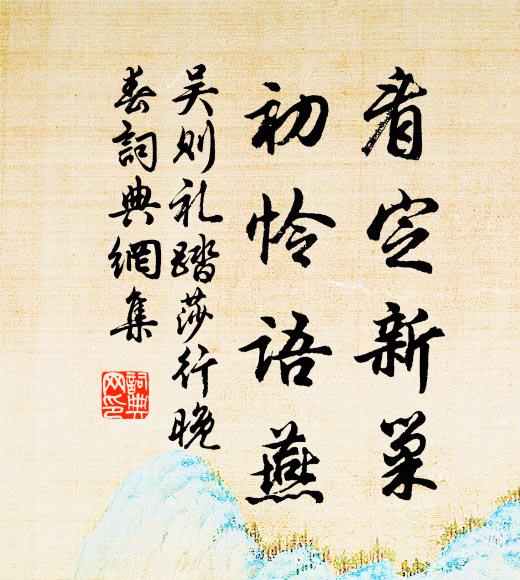 看定新巢
初怜语燕
吴则礼踏莎行晚
春词典網集
词典网印